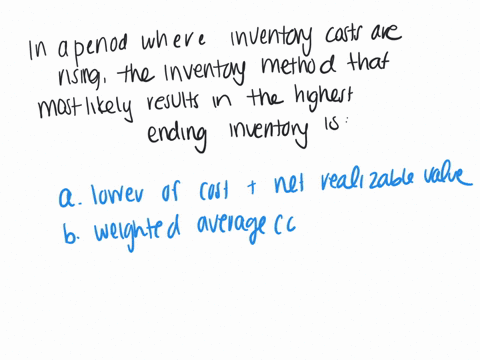 In a period where inventory costs are
rising, the inventory method that
most likely results in the highest
ending inventory is:
a. lower of cost + net realizable value
b. weighted average cc